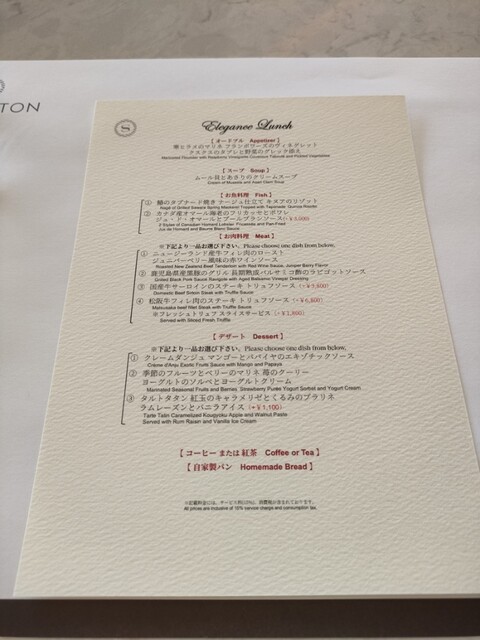 TON
S
Elegance Lunch
【 オードブル Appetizer 】
帯ヒラメのマリネ フランボワーズのヴィネグレット
クスクスのタブレと野菜のグレック添え
Marinated Flounder with Raspberry Vinaigrette Couscous Tabouleh and Pickled Vegetables
【 スープ Soup 】
ムール貝とあさりのクリームスープ
Cream of Mussels and Asari Clam Soup
【 お魚料理 Fish 】
① 鰆のタプナード焼き ナージュ仕立て キヌアのリゾット
Nage of Grilled Sawara Spring Mackerel Topped with Tapenade Quinoa Risotto
② カナダ産オマール海老のフリカッセとポワレ
ジュ・ド・オマールとブールブランソース
2 Styles of Canadian Homard Lobster: Fricassée and Pan-Fried
Jus de Homard and Beurre Blanc Sauce
【 お肉料理 Meat 】
※下記より一品お選び下さい。Please choose one dish from below.
① ニュージーランド産牛フィレ肉のロースト
ジュニパーベリー風味の赤ワインソース
Roasted New Zealand Beef Tenderloin with Red Wine Sauce, Juniper Berry Flavor
② 鹿児島県産黒豚のグリル 長期熟成バルサミコ酢のラビゴットソース
Grilled Black Pork Sauce Ravigote with Aged Balsamic Vinegar Dressing
③ 国産牛サーロインのステーキ トリュフソース
Domestic Beef Sirloin Steak with Truffle Sauce
④ 松阪牛フィレ肉のステーキ トリュフソース
Matsuzaka beef fillet Steak with Truffle Sauce
※フレッシュトリュフ スライスサービス
Served with Sliced Fresh Truffle
【 デザート Dessert 】
※下記より一品お選び下さい。Please choose one dish from below.
① クレームダンジュ マンゴーとパパイヤのエキゾチックソース
Crème d'Anju Exotic Fruits Sauce with Mango and Papaya
② 季節のフルーツとベリーのマリネ 苺のクーリー
ヨーグルトのソルベとヨーグルトクリーム
Marinated Seasonal Fruits and Berries, Strawberry Puree Yogurt Sorbet and Yogurt Cream
③ タルトタタン 紅玉のキャラメリゼとくるみのプラリネ
ラムレーズンとバニラアイス (+￥1,100)
Tarte Tatin Caramelized Kougyoku Apple and Walnut Paste
Served with Rum Raisin and Vanilla Ice Cream
【 コーヒー または 紅茶 Coffee or Tea 】
【 自家製パン Homemade Bread 】
※記載料金には、サービス料(10%)、消費税が含まれております。
All prices are inclusive of 10% service charge and consumption tax.